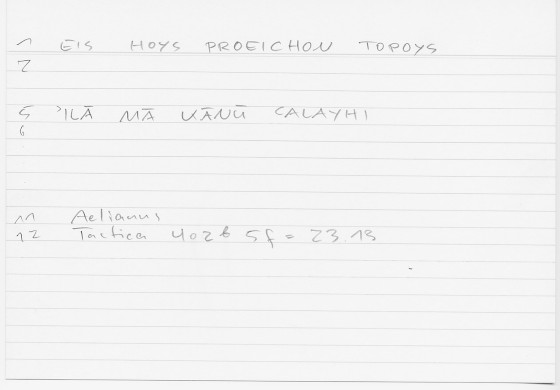 1 EIS HOYS PROEICHON TOPOYS
2
5 ʾILĀ MĀ KĀNŪ CALAYHI
6
11 Aelianus
12 Tactica 402b 5f = 23.13